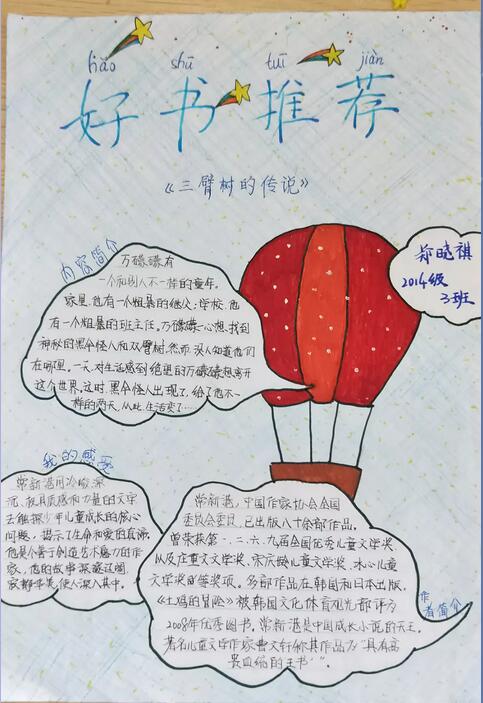 hǎo shū tuī jiàn
好书推荐
《三臂树的传说》
郑晓祺
2014级
3班
内容简介
万礞礞有
一个和别人不一样的童年。
家里,他有一个粗暴的继父;学校,他
有一个粗暴的班主任。万礞礞一心想找到
神秘的黑伞怪人和双臂树,然而,没人知道他们
在哪里。一天,对生活感到绝望的万礞礞想离开
这个世界,这时,黑伞怪人出现了,给了他不一
样的两天,从此,生活变了……
我的感受
常新港用冷峻、深
沉、极具质感和力量的文字
去触探少年儿童成长的核心
问题,揭示了生命和爱的真谛。
他是个善于创造艺术魔力的作
家,他的故事深邃辽阔,
寂静华美,使人深入其中。
作者简介
常新港,中国作家协会全国
委员会委员,已出版八十余部作品。
曾荣获第一、二、六、九届全国优秀儿童文学奖,
以及庄重文文学奖、宋庆龄儿童文学奖、冰心儿童
文学奖等奖项。多部作品在韩国和日本出版。
《土鸡的冒险》被韩国文化体育观光部评为
2008年优秀图书。常新港是中国成长小说的天王。
著名儿童文学作家曹文轩称其作品为“具有高
贵血统的王书”。